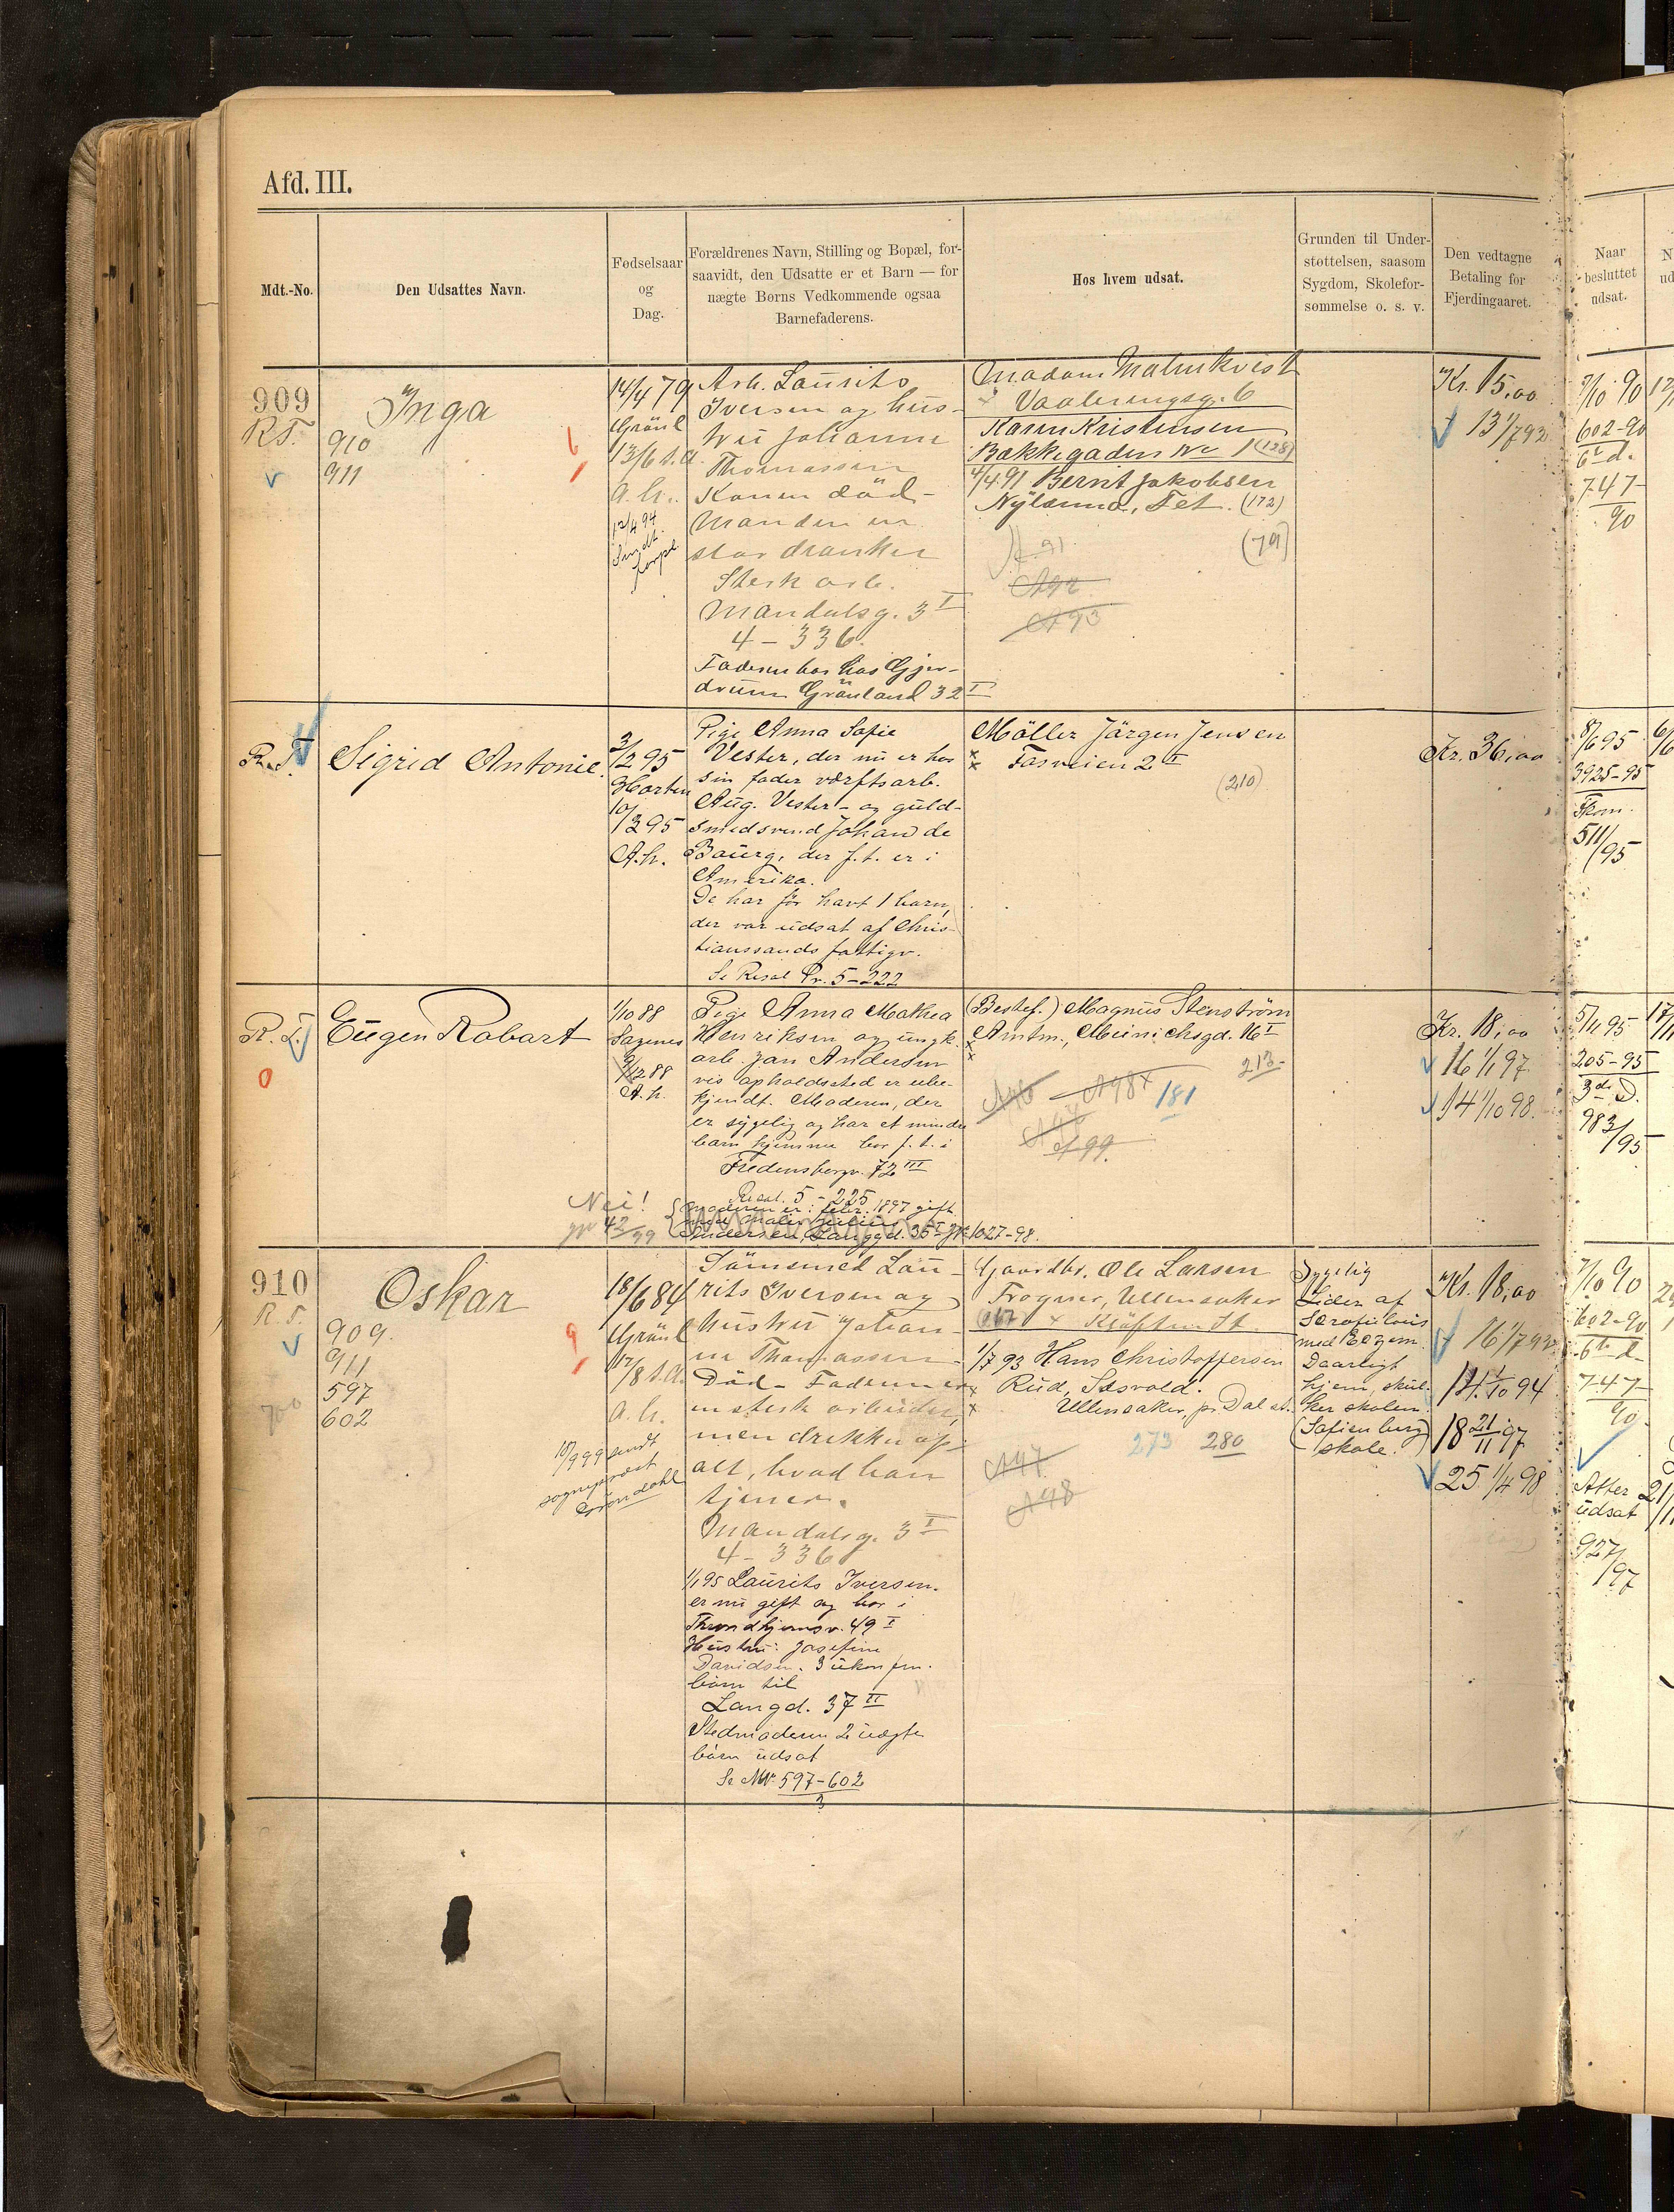 Afd. III.
Mdt.-No.
Den Udsattes Navn.
Fødselsaar
og
Dag.
Forældrenes Navn, Stilling og Bopæl, for-
saavidt, den Udsatte er et Barn — for
uægte Børns Vedkommende ogsaa
Barnefaderens.
Hos hvem udsat.
Grunden til Under-
støttelsen, saasom
Sygdom, Skolefor-
sømmelse o. s. v.
Den vedtagne
Betaling for
Fjerdingaaret.
Naar
besluttet
udsat.
909
R.T.
Inga
910
911
6
14/4 79
Grönl
13/6 s.a.
a.h.
12/4 94
Arb. Laurits
Iversen og hus-
tru Johanne
Thomassen
Konen död-
Manden en
stor dranker
Sterk arb.
Mandalsg. 3 I
4 - 336.
Faderen bor hos Gjer-
drum Grönland 32 I
Madam Malmkvist
Vaalerengsg. 6
Karen Kristensen
Bakkegaden No 1 (128)
4/4 91 Bernt Jakobsen
Nylænna, Fet. (172)
(79)
A 91
A 92
A 93
Kr. 15,00
13 1/7 92
7/10 90
602-90
6te d.
747
90
R.T.
Sigrid Antonie.
3/2 95
Horten
10/3 95
A.h.
Pige Anna Sofie
Vester, der nu er hos
sin fader værftsarb.
Aug. Vester - og guld-
smedsvend Johan de
Baurg, der f.t. er i
Amerika.
De har för havt 1 barn,
der var udsat af Chris-
tianssands fattigv.
Se Resol Pr. 5-222
Möller Jörgen Jensen
Fasveien 2 II
(210)
Kr. 36,00
8/6 95
3925-95
Tkom.
511/95
R.T.
0
Eugen Robart
1/10 88
Sagenes
9/12 88
A.h.
Pige Anna Mathea
Henriksen og ungk.
arb. Jan Andersen
vis opholdssted er ube-
kjendt. Moderen, der
er sygelig og har et mindre
barn hjemme bor f.t. i
Fredensborgv. 72 III
Resol. 5 - 225
Moderen er i febr. 1897 gift
Andersen, Langgd. 35 I 1027-98.
Nei!
42/99
(Bestef.) Magnus Stenström
Amtm. Meinichsgd. 16 I
213
A 98
181
A 99
Kr. 18,00
16 1/1 97
14 1/10 98.
5/11 95
205-95
3die D.
983/95
910
R.T.
Oskar
909.
911
597
602
700
9
18/6 84
Grönl
17/8 s.a.
a.h.
18/9 99 sendt
sogneprest
Gröndahl
Tömsmed Lau-
rits Iversen og
hustru Johan-
ne Thomassen-
Död - Faderen er
en sterk arbeider,
men drikker op
alt, hvad han
tjener.
Mandalsg. 3 I
4 - 336
1/1 95 Laurits Iversen.
er nu gift og bor i
Throndhjemsv. 49 I
Hustru: Josefine
Davidsen. 3 ukonfrm.
börn til
Langd. 37 II
Stedmoderen 2 uægte
börn udsat
Se No. 597-602
3
Gaardbr. Ole Larsen
Frogner, Ullensaker
Klöften St.
1/7 93 Hans Christoffersen
Rud, Isesvold.
Ullensaker, pr Dal st.
273 280
A 97
A 98
Sygelig
Lider af
Scrofulous
med Eczem.
Daarligt
hjem, skul-
ker skolen
(Sofienberg
skole.)
Kr. 18,00
16 1/7 92
14. 1/10 94
18 21/11 97
25 1/4 98
7/10 90
602-90
6te d
747
90
Atter
udsat
927/97